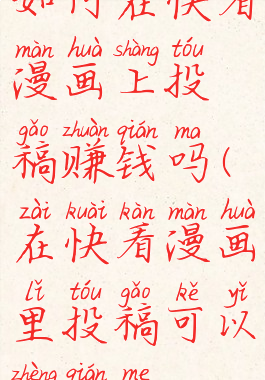 如何在快看
màn huà shàng tóu
漫画上投
gǎo zhuàn qián ma
稿赚钱吗(
zài kuài kàn màn huà
在快看漫画
lǐ tóu gǎo kě yǐ
里投稿可以
zhèng qián me